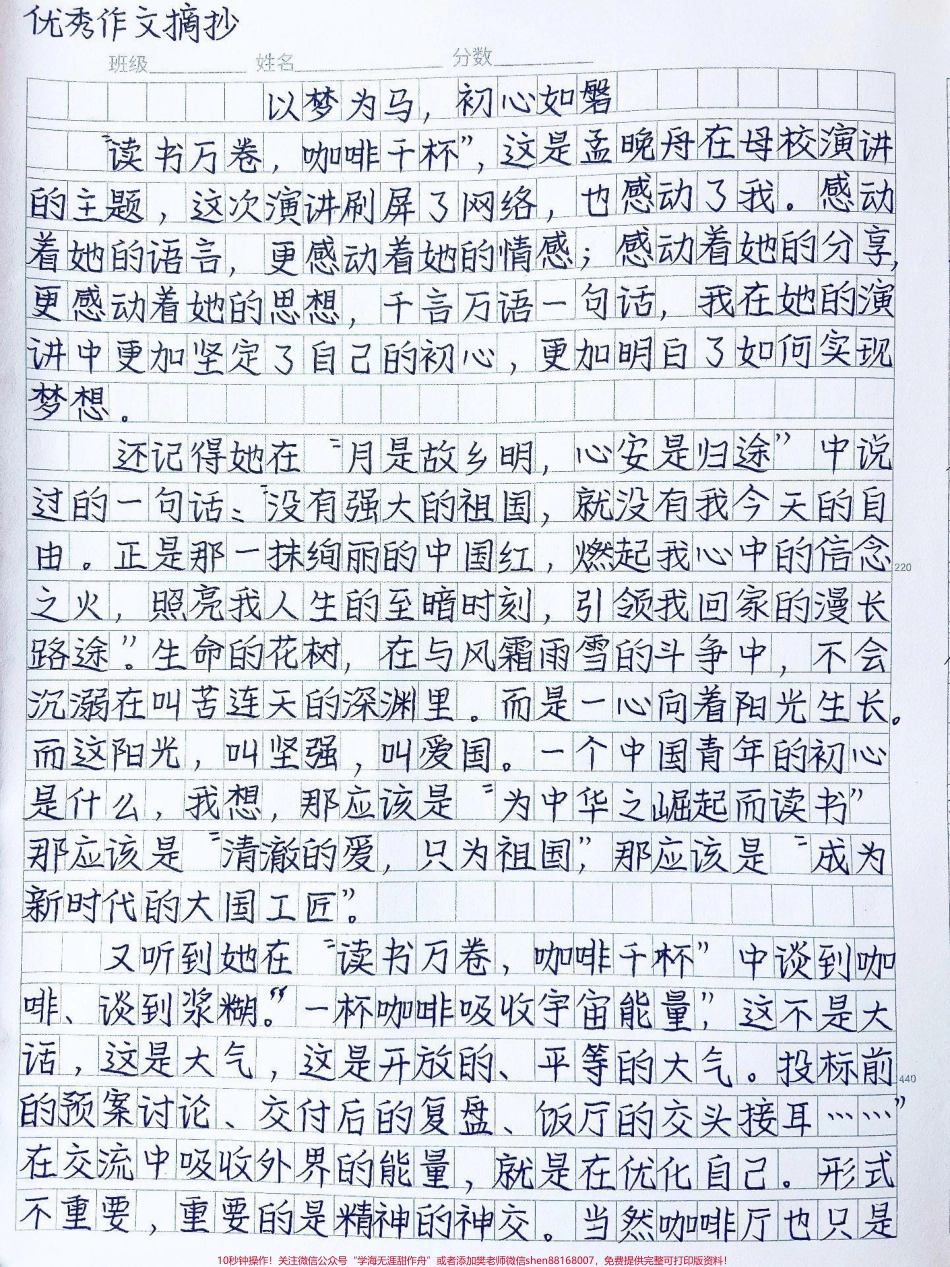 优秀作文摘抄
班级 姓名 分数
以梦为马，初心如磐
“读书万卷，咖啡千杯”，这是孟晚舟在母校演讲
的主题，这次演讲刷屏了网络，也感动了我。感动
着她的语言，更感动着她的情感；感动着她的分享，
更感动着她的思想，千言万语一句话，我在她的演
讲中更加坚定了自己的初心，更加明白了如何实现
梦想。
还记得她在“月是故乡明，心安是归途”中说
过的一句话：“没有强大的祖国，就没有我今天的自
由。正是那一抹绚丽的中国红，燃起我心中的信念
220
之火，照亮我人生的至暗时刻，引领我回家的漫长
路途”。生命的花树，在与风霜雨雪的斗争中，不会
沉溺在叫苦连天的深渊里。而是一心向着阳光生长。
而这阳光，叫坚强，叫爱国。一个中国青年的初心
是什么，我想，那应该是“为中华之崛起而读书”
那应该是“清澈的爱，只为祖国”，那应该是“成为
新时代的大国工匠”。
又听到她在“读书万卷，咖啡千杯”中谈到咖
啡、谈到浆糊。“一杯咖啡吸收宇宙能量”，这不是大
话，这是大气，这是开放的、平等的大气。投标前
440
的预案讨论、交付后的复盘、饭厅的交头接耳……”
在交流中吸收外界的能量，就是在优化自己。形式
不重要，重要的是精神的神交。当然咖啡厅也只是
10秒钟操作！关注微信公众号“学海无涯甜作舟”或者添加樊老师微信shen88168007，免费提供完整可打印版资料！